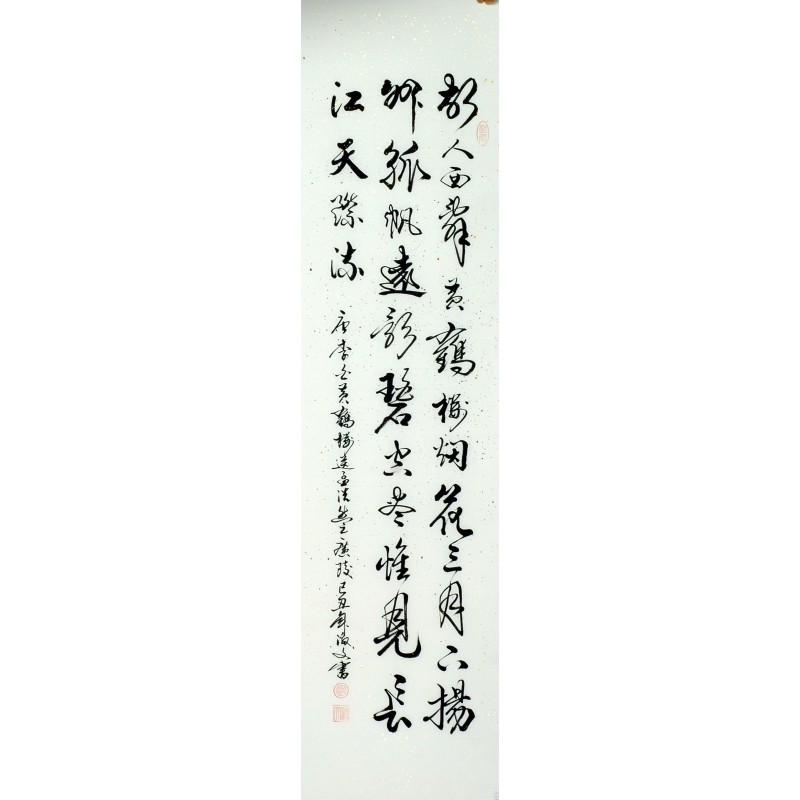 故人西辞黄鶴楼烟花三月下揚
州孤帆遠影碧空尽惟見長
江天際流
唐李白黄鶴楼送孟浩然之廣陵己丑年淑文書